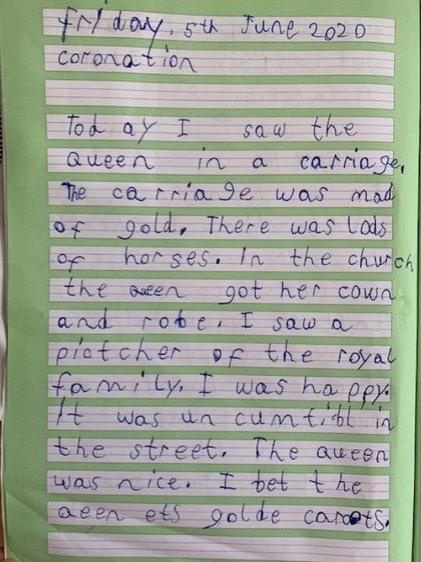 Friday, 5th June 2020
coronation
Today I saw the
Queen in a carriage.
The carriage was mad
of gold. There was lods
of horses. In the church
the ueen got her cown
and robe. I saw a
pictcher of the royal
family. I was happy.
It was un cumtibl in
the street. The queen
was nice. I bet the
qeen ets golde carots.